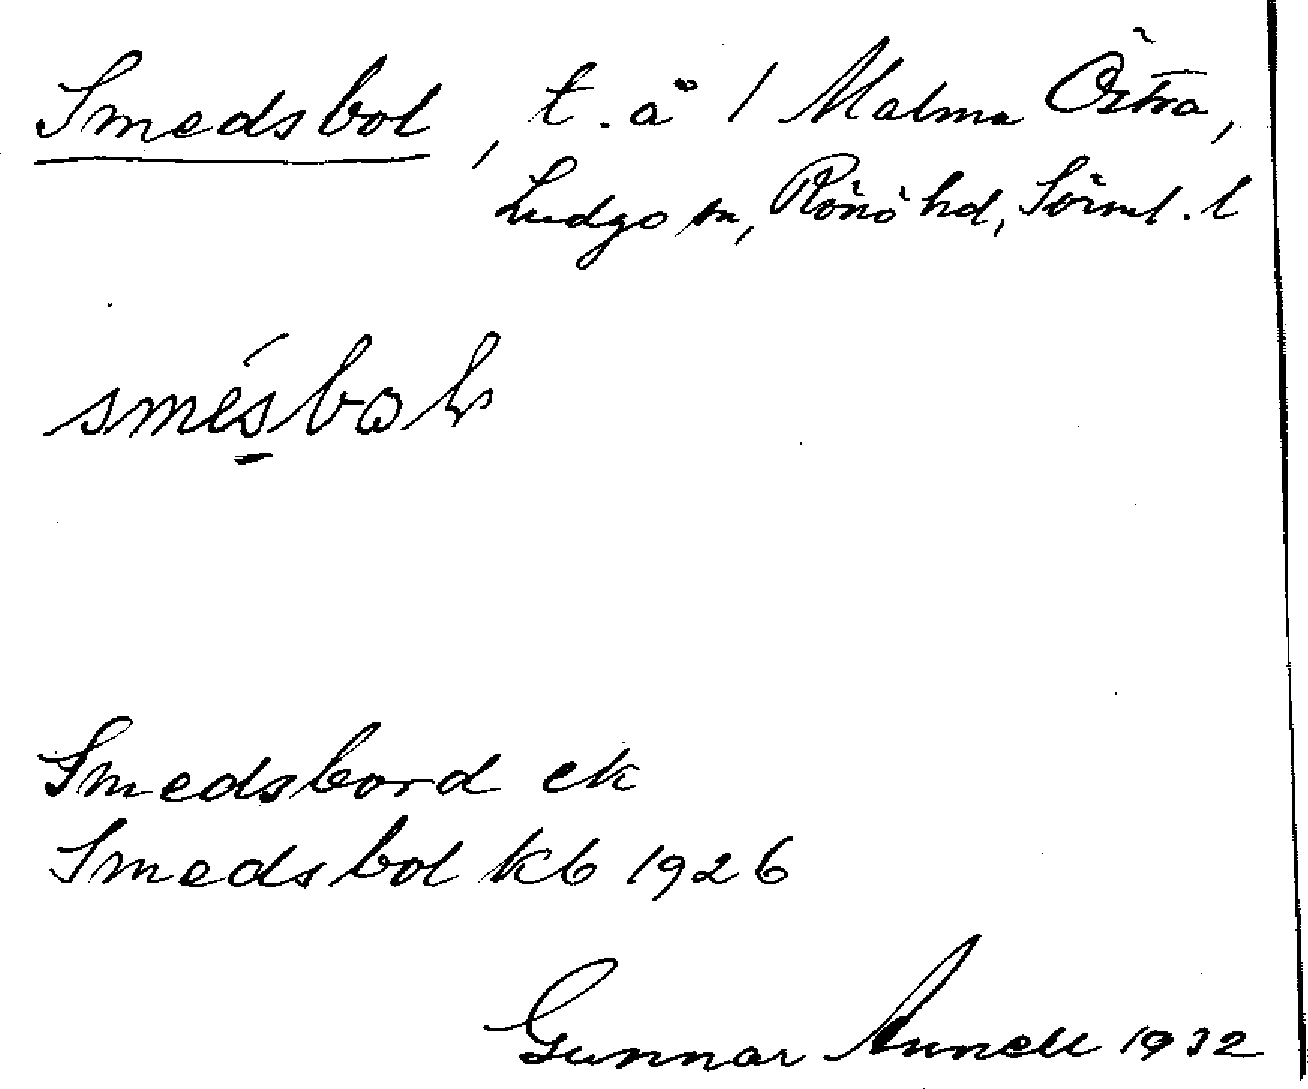 Smedsbol, t. å 1 Malma Östra,
Ludgo sn, Rönö hd, Sörml. l
smésbol
Smedsbord ek
Smedsbol kb 1926
Gunnar Annell 1932